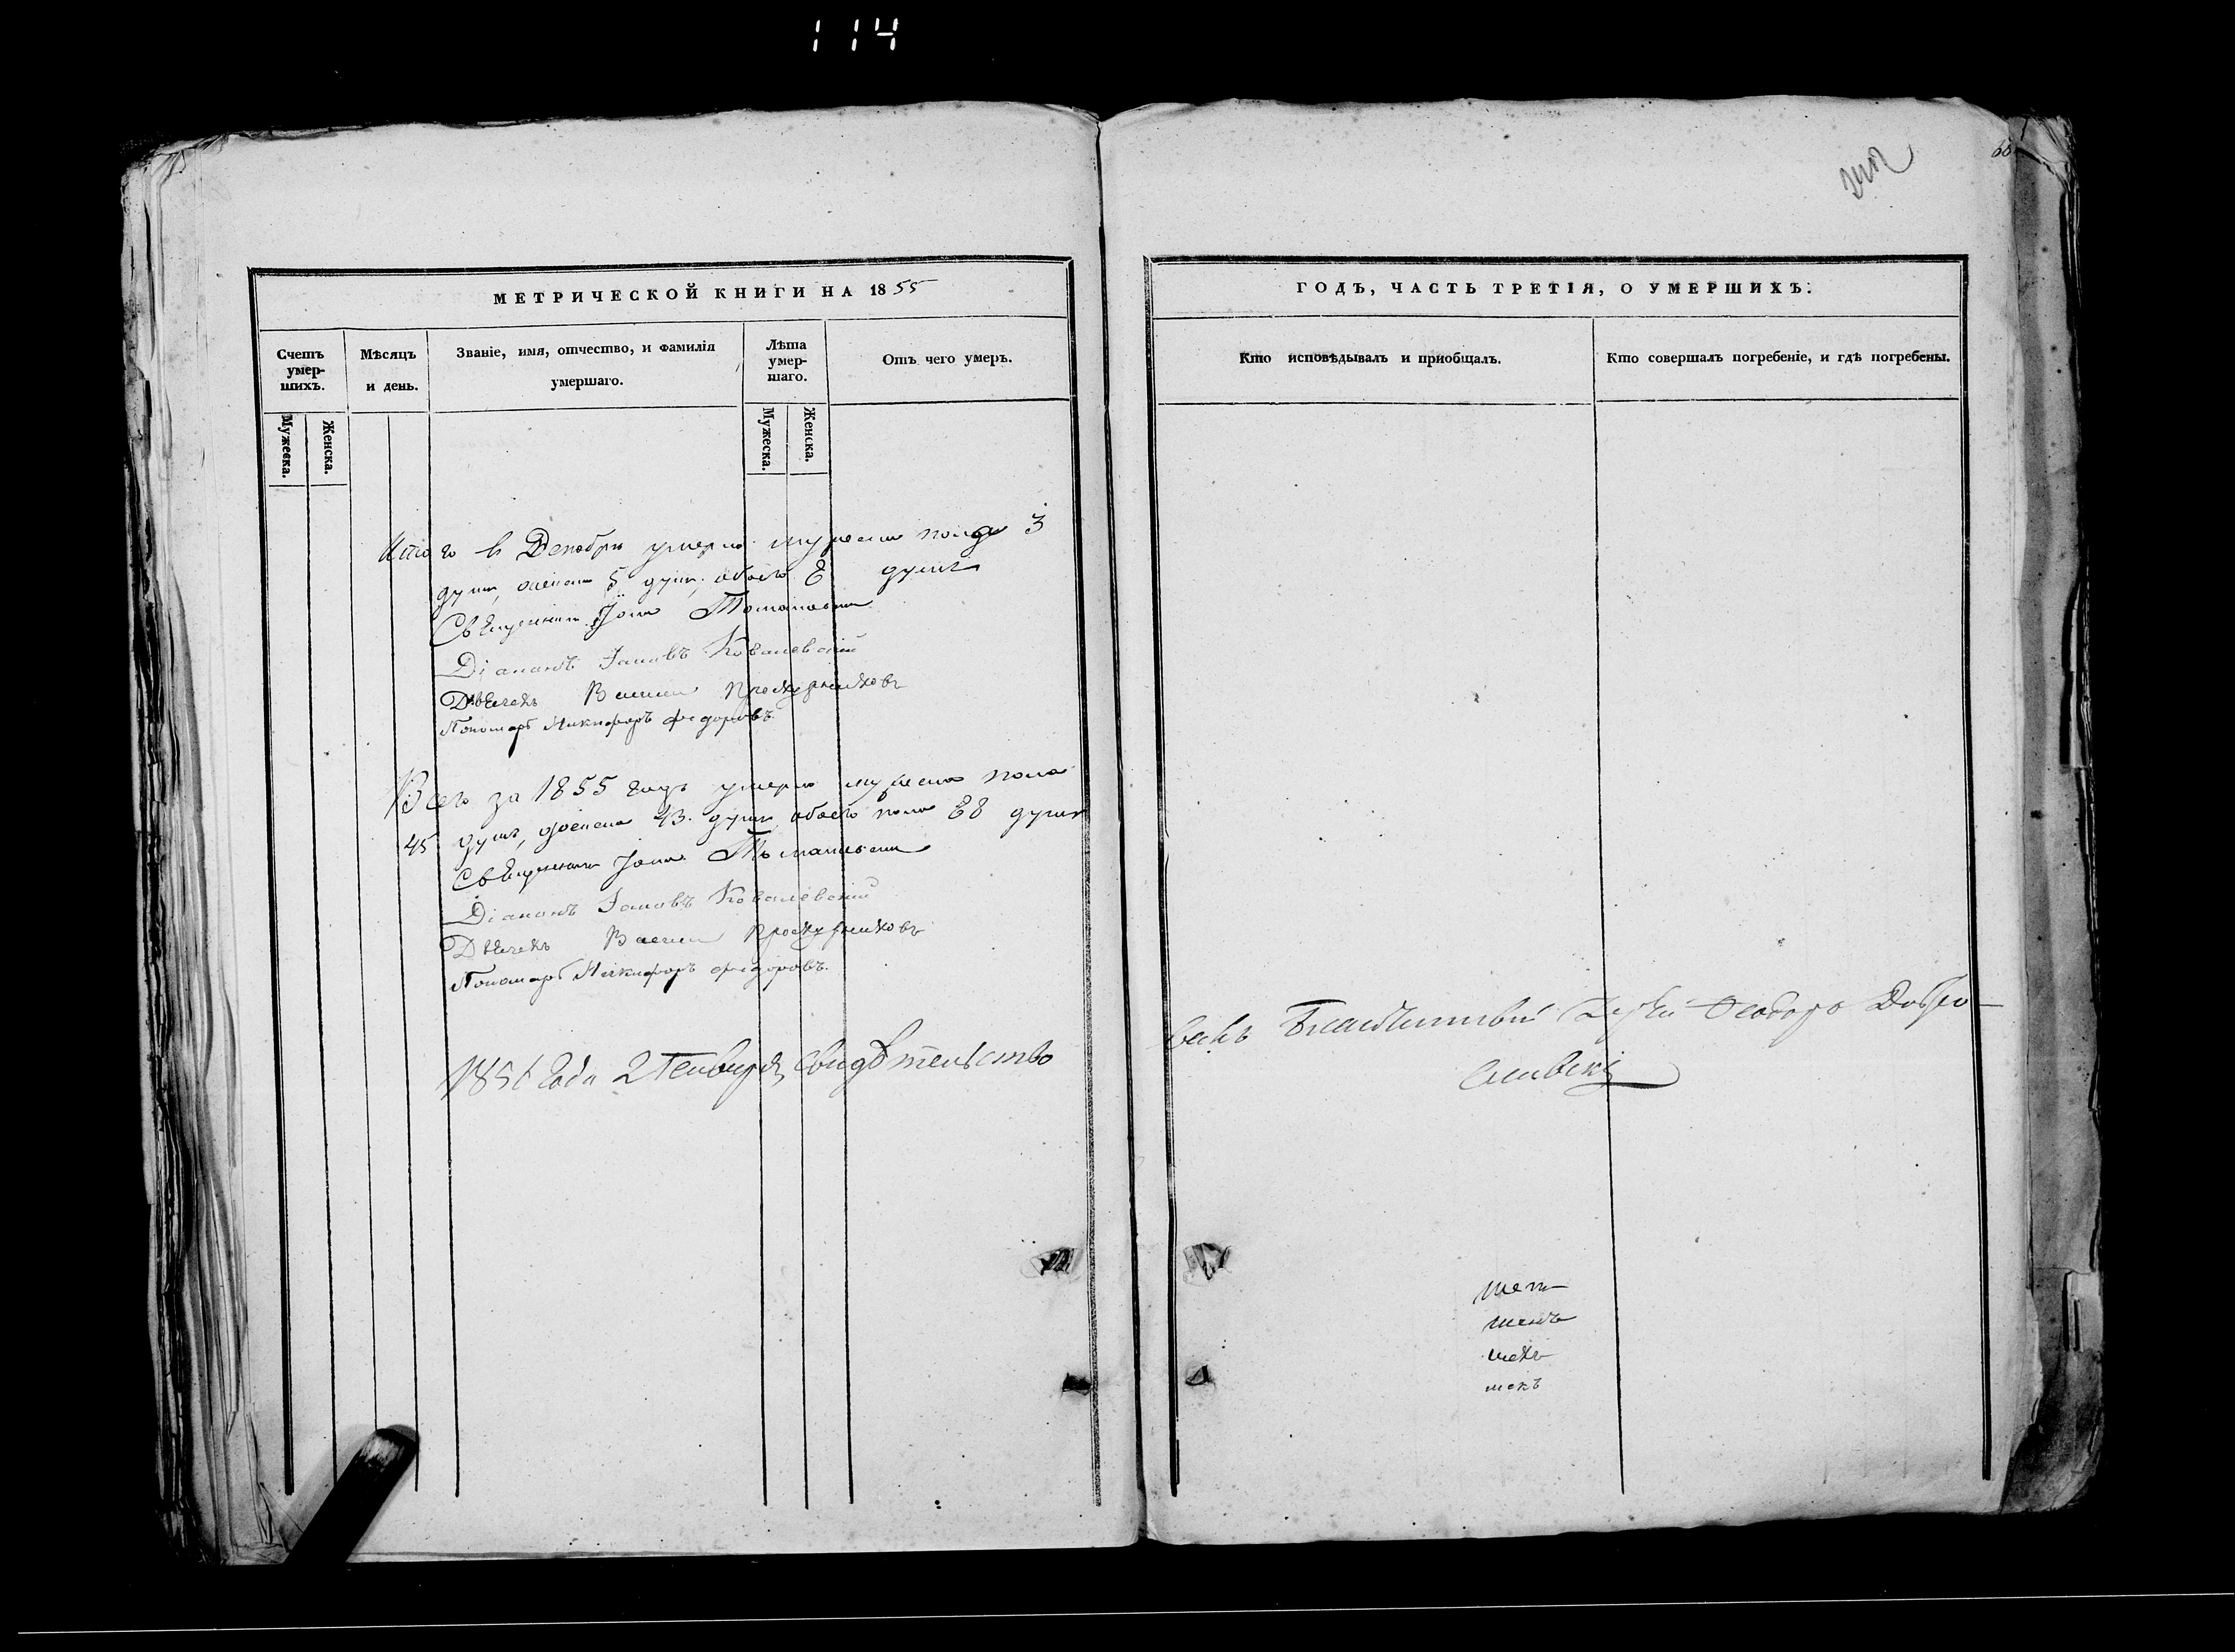 114
МЕТРИЧЕСКОЙ КНИГИ НА 1855
Счетъ умер-шихъ.
Мѣсяцъ и день.
Званіе, имя, отчество, и фамилія умершаго.
Лѣта умер-шаго.
Отъ чего умеръ.
Мужеска.
Женска.
Мужеска.
Женска.
Итого въ Декабрѣ умерло мужеска пола 3
душъ, женска 5 душъ, обоего 8 душъ
Священникъ Іоаннъ
Діаконъ Іаковъ Ковалевскій
Дьячекъ Василій Проскурниковъ
Пономарь Никифоръ Федоровъ.
Всего за 1855 годъ умерло мужеска пола
45 душъ, женска 43 душъ, обоего пола 88 душъ
Священникъ Іоаннъ
Діаконъ Іаковъ Ковалевскій
Дьячекъ Василій Проскурниковъ
Пономарь Никифоръ Федоровъ.
1856 Года 2 Генваря, свидѣтельство
ГОДЪ, ЧАСТЬ ТРЕТІЯ, О УМЕРШИХЪ.
Кто исповѣдывалъ и пріобщалъ.
Кто совершалъ погребеніе, и гдѣ погребены.
валъ Благочинный Іерей Ѳеодоръ Добро-
славскій